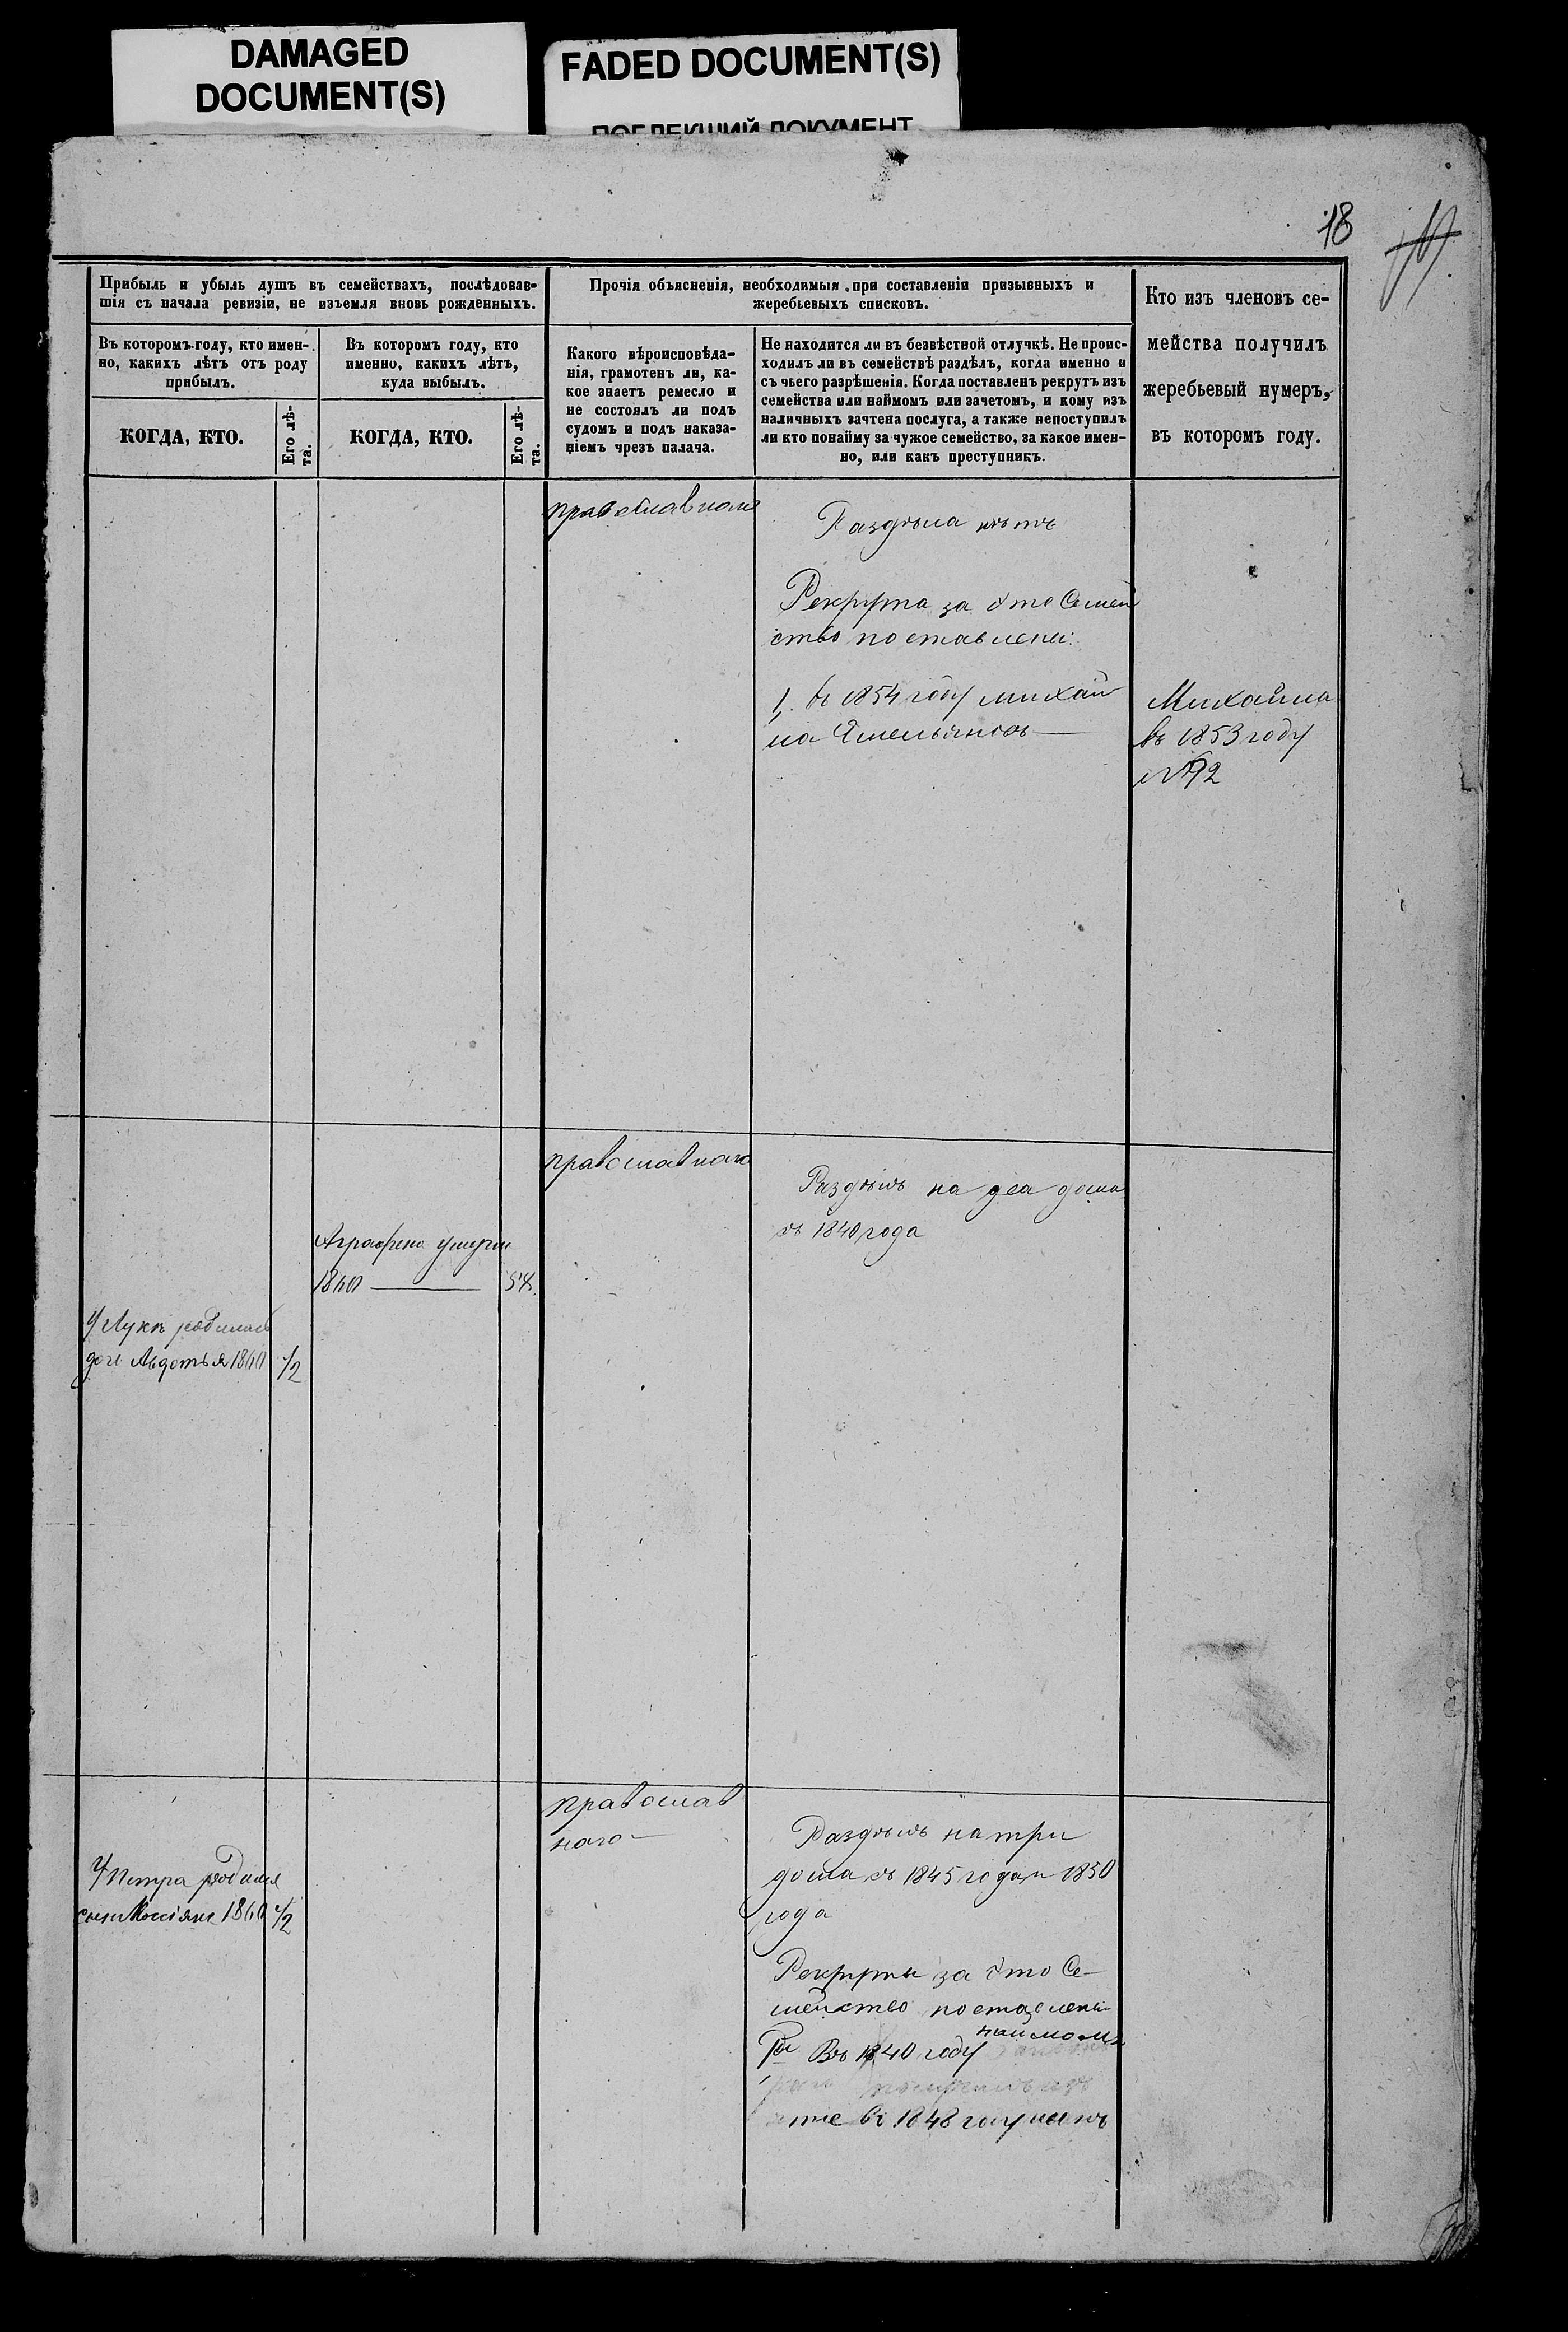 DAMAGED
DOCUMENT(S)
FADED DOCUMENT(S)
ПОБЛЕКШИЙ ДОКУМЕНТ
18
Прибыль и убыль душъ въ семействахъ, послѣдовав-
шія съ начала ревизіи, не изъемля вновь рожденныхъ.
Въ которомъ году, кто имен-
но, какихъ лѣтъ отъ роду
прибылъ.
КОГДА, КТО.
Его лѣ-
та.
Въ которомъ году, кто
именно, какихъ лѣтъ,
куда выбылъ.
КОГДА, КТО.
Его лѣ-
та.
Прочія объясненія, необходимыя при составленіи призывныхъ и
жеребьевыхъ списковъ.
Какого вѣроисповѣда-
нія, грамотенъ ли, ка-
кое знаетъ ремесло и
не состоялъ ли подъ
судомъ и подъ наказа-
ніемъ чрезъ палача.
Не находится ли въ безвѣстной отлучкѣ. Не проис-
ходилъ ли въ семействѣ раздѣлъ, когда именно и
съ чьего разрѣшенія. Когда поставленъ рекрутъ изъ
семейства или наймомъ или зачетомъ, и кому изъ
наличныхъ зачтена послуга, а также непоступилъ
ли кто понайму за чужое семейство, за какое имен-
но, или какъ преступникъ.
Кто изъ членовъ се-
мейства получилъ
жеребьевый нумеръ,
въ которомъ году.
православнаго
Раздѣла нѣтъ
Рекрута за это Семей
ство поставлены:
1, въ 1854 году михай
ла Емельяновъ
Михайла
въ 1853 году
№ 92
православнаго
Раздѣлъ на два дома
съ 1840 года
Аграфена умерла
1860 58.
У Луки родилась
дочь Авдотья 1860 1/2
православ
наго
Раздѣлъ на три
дома съ 1845 года и 1850
года
У Петра родился
сынъ 1860 1/2
Рекруты за это Се-
мейство поставлены
наймомъ
Въ 1840 году
въ 1848 году